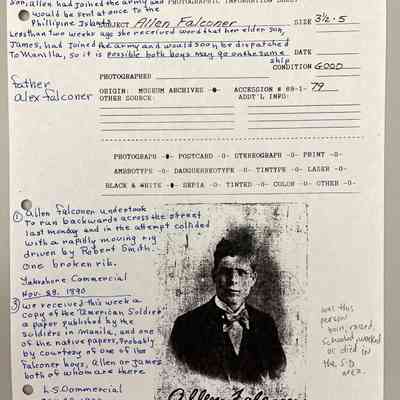 son, allen had joined the army and
would be sent at once to the
Phillipine Islands.
Less than two weeks ago she received word that her elder son,
James, had joined the army and would soon be dispatched
to Manilla, so it is possible both boys may go on the same
ship
father
alex falconer
PHOTOGRAPHIC INFORMATION SHEET
SUBJECT Allen Falconer SIZE 3½.5
DATE
CONDITION GOOD
PHOTOGRAPHED
ORIGIN: MUSEUM ARCHIVES ACCESSION # 89-1- 79
OTHER SOURCE: ADDT'L INFO:
PHOTOGRAPH POSTCARD -0- STEREOGRAPH -0- PRINT -0-
AMBROTYPE -0- DAUGUERREOTYPE -0- TINTYPE -0- LASER -0-
BLACK & WHITE SEPIA -0- TINTED -0- COLOR -0- OTHER -0-
① Allen Falconer undertook
to run backwards across the street
last monday and in the attempt collided
with a rapidly moving rig
driven by Robert Smith.
One broken rib.
Lakeshore Commercial
Nov. 28, 1890
③ we received this week a
copy of the "American Soldier"
a paper published by the
soldiers in Manila, and one
of the native papers, Probably
by courtesy of one of the
Falconer boys, Allen or James
both of whom are there
L.S. Commercial
was this
person
born, raised,
schooled, worked
or died in
the S-D
area.
Allen Falconer